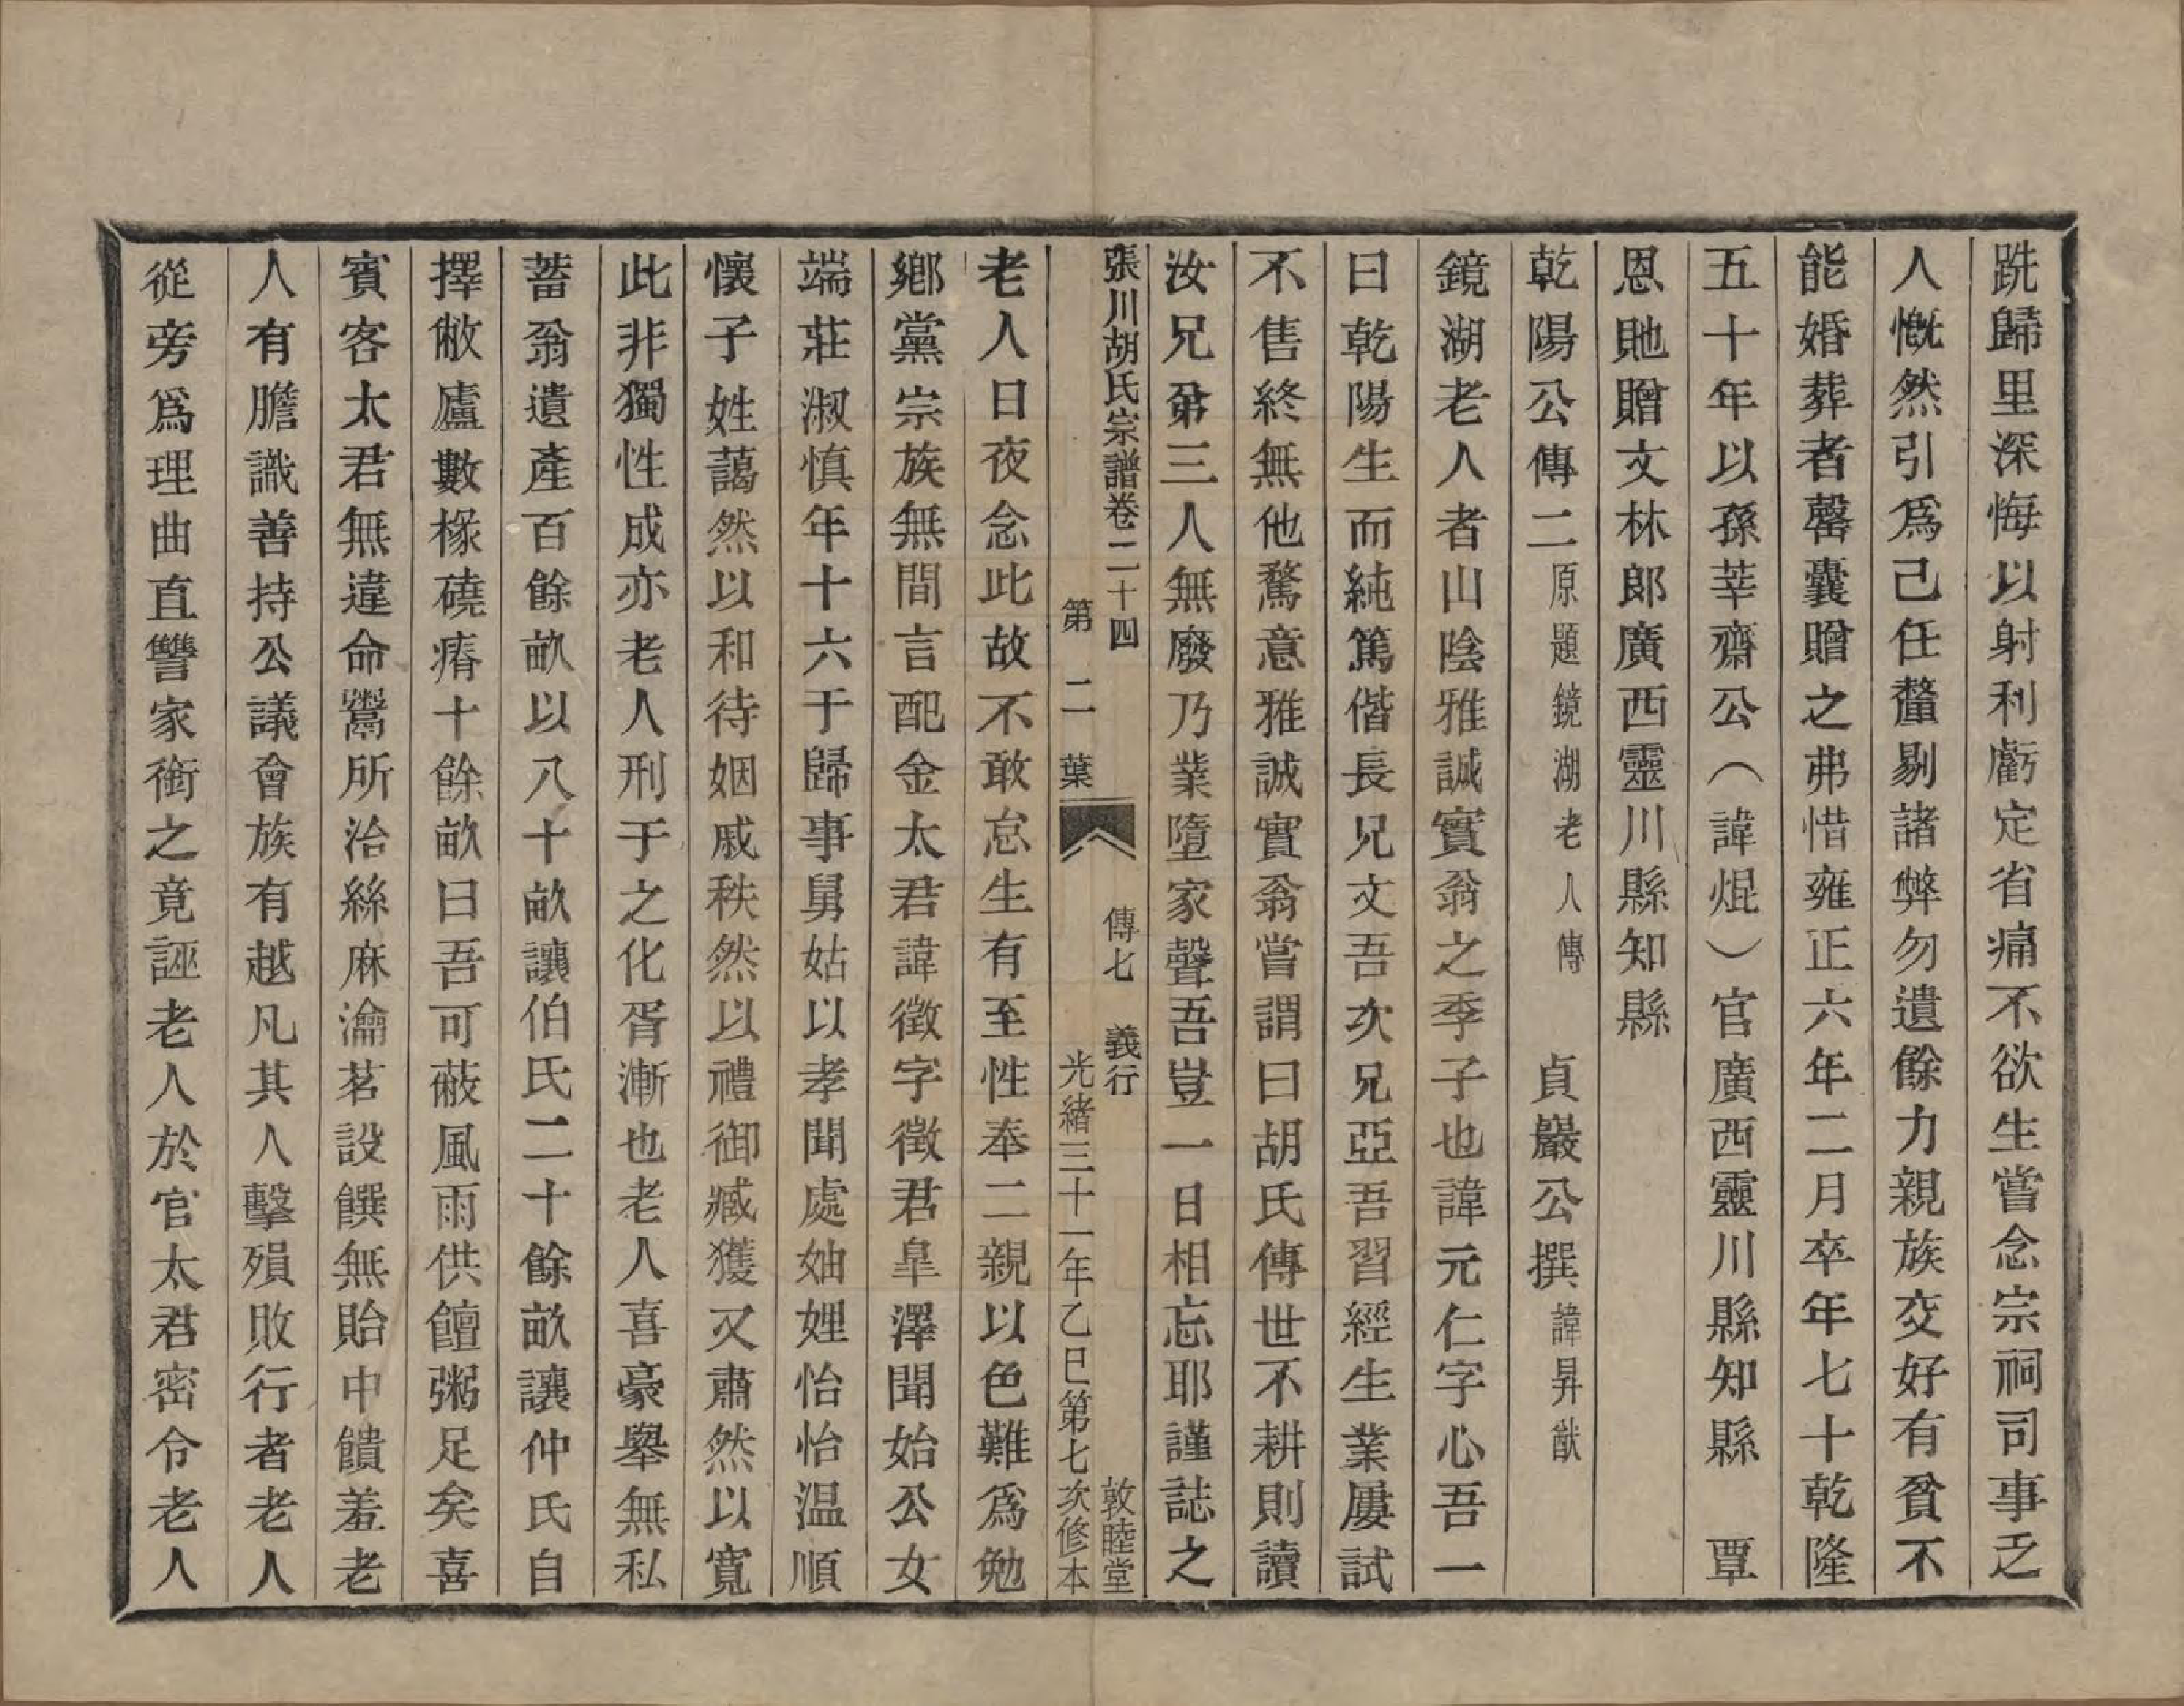 跣歸里深悔以射利虧定省痛不欲生嘗念宗祠司事乏
人慨然引爲己任釐剔諸弊勿遺餘力親族交好有貧不
能婚葬者罄囊贈之弗惜雍正六年二月卒年七十乾隆
五十年以孫莘齋公（諱焜）官廣西靈川縣知縣　覃
恩貤贈文林郎廣西靈川縣知縣
乾陽公傳二原題鏡湖老人傳　貞巖公撰諱昇猷
鏡湖老人者山陰雅誠實翁之季子也諱元仁字心吾一
曰乾陽生而純篤偕長兄文吾次兄亞吾習經生業屢試
不售終無他騖意雅誠實翁嘗謂曰胡氏傳世不耕則讀
汝兄弟三人無廢乃業墮家聲吾豈一日相忘耶謹誌之
張川胡氏宗譜卷二十四　傳七　義行　敦睦堂
第二葉　光緒三十一年乙巳第七次修本
老人日夜念此故不敢怠生有至性奉二親以色難爲勉
鄉黨宗族無間言配金太君諱徵字徵君皐澤聞始公女
端莊淑慎年十六于歸事舅姑以孝聞處妯娌怡怡温順
懷子姓藹然以和待姻戚秩然以禮御臧獲又肅然以寬
此非獨性成亦老人刑于之化胥漸也老人喜豪舉無私
蓄翁遺產百餘畝以八十畝讓伯氏二十餘畝讓仲氏自
擇敝廬數椽磽瘠十餘畝曰吾可蔽風雨供饘粥足矣喜
賓客太君無違命鬻所治絲麻瀹茗設饌無貽中饋羞老
人有膽識善持公議會族有越凡其人擊殞敗行者老人
從旁爲理曲直讐家銜之竟誣老人於官太君密令老人